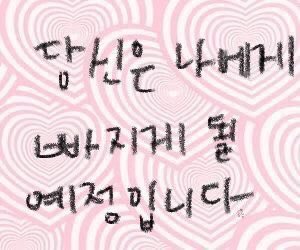 당신은 나베게
빠지게 될
예정입니다